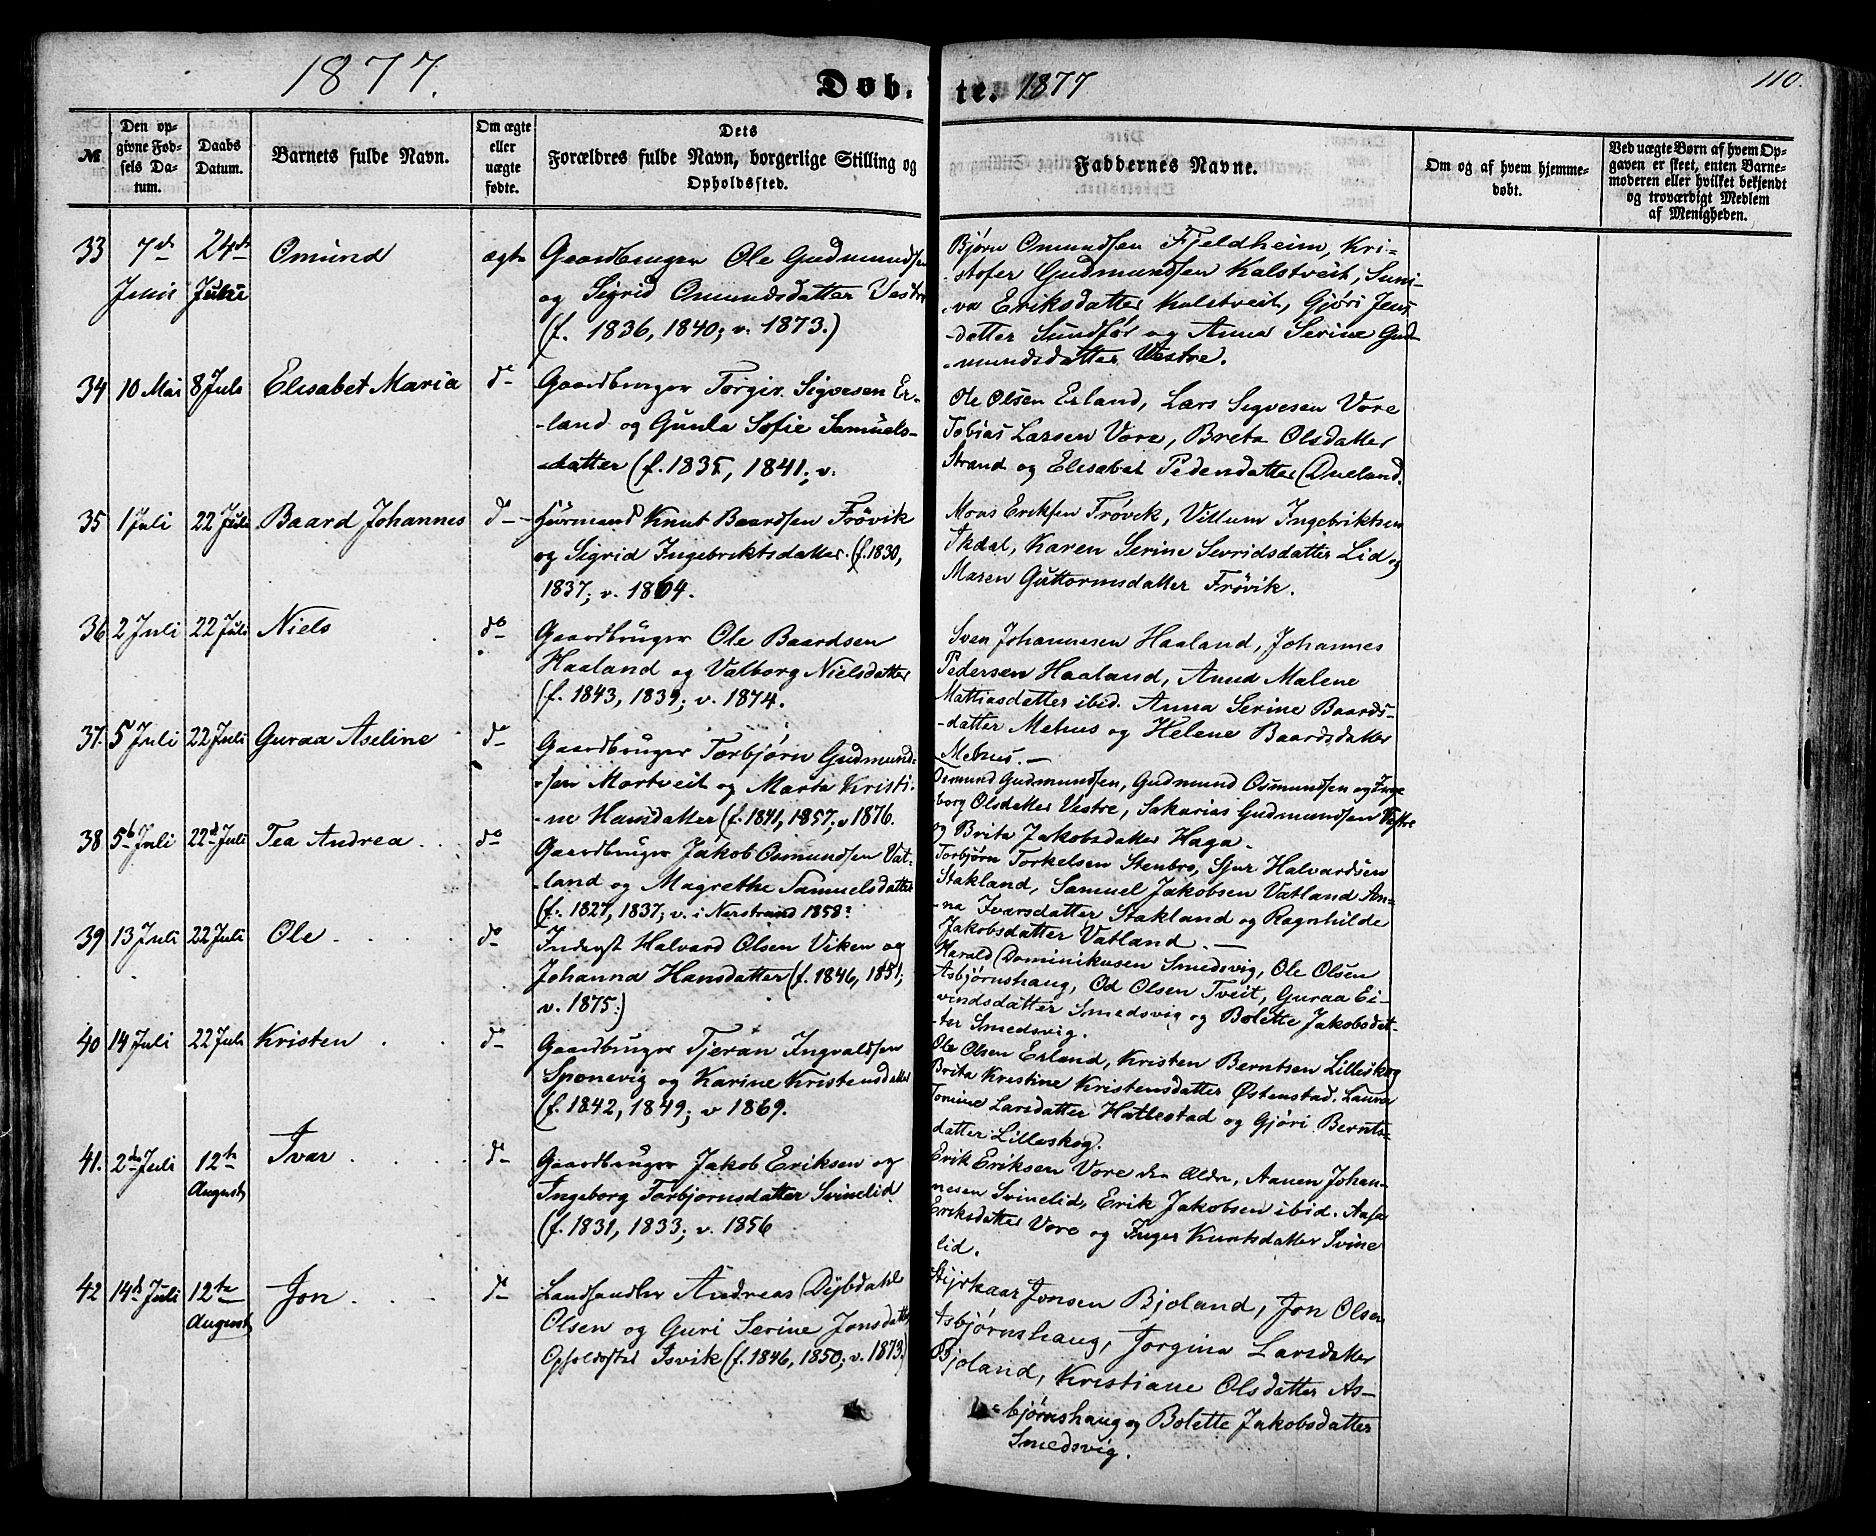 1877.
Døb-te. 1877
110.
№
Den opgivne Fødsels Datum.
Daabs Datum.
Barnets fulde Navn.
Om ægte eller uægte fødte.
Dets Forældres fulde Navn, borgerlige Stilling og Opholdssted.
Faddernes Navne.
Om og af hvem hjemmedøbt.
Ved uægte Børn af hvem Opgaven er skeet, enten Barnemoderen eller hvilket bekjendt og troværdigt Medlem af Menigheden.
33 7de Juni 24de Juni Omund ægte
Gaardbruger Ole Gudmundsen
og Sigrid Omundsdatter Vestre
(f. 1836, 1840; v. 1873.)
Bjørn Omundsen Fjeldheim, Kri-
-stofer Gudmundsen Kalstveit, Suni-
-va Eriksdatter Kalstveit, Gjøri Jens-
-datter Sundfør og Anna Serine Gud-
-mundsdatter Vestre.
34 10 Mai 8 Juli Elisabet Maria do
Gaardbruger Torgir Sigvesen Er-
-land og Gunla Sofie Samuels-
-datter (f. 1835, 1841; v.
Ole Olsen Erland, Lars Sigvesen Vore
Tobias Larsen Vore, Breta Olsdatter
Strand og Elisabet Pedersdatter Dueland.
35 1 Juli 22 Juli Baard Johannes do
Huusmand Knut Baardsen Frövik
og Sigrid Ingebriktsdatter. (f. 1830,
1837; v. 1864.
Mons Eriksen Frövik, Villum Ingebriktsen
Akdal, Karen Serine Sevridsdatter Lid og
Maren Guttormsdatter Frövik.
36 2 Juli 22 Juli Niels do
Gaardbruger Ole Baardsen
Haaland og Valborg Nielsdatter
(f. 1843, 1839; v. 1874.
Sven Johannesen Haaland, Johannes
Pedersen Haaland, Anna Malene
Mattiasdatter ibid. Anna Serine Baards-
-datter Mehus og Helene Baardsdatter
Mehus. —
37. 5 Juli 22 Juli Guraa Aseline do
Gaardbruger Torbjørn Gudmund-
-sen Mortveit og Marta Kristi-
-ne Hansdatter (f. 1841, 1857; v 1876.
Osmund Gudmundsen, Gudmund Osmundsen og Inge
borg Olsdatter Vestre, Sakarias Gudmundsen Vestre
og Brita Jakobsdatter Haga.
38 5te Juli 22de Juli Tea Andrea do
Gaardbruger Jakob Osmundsen Vat-
-land og Magrethe Samuelsdatter
(f. 1827, 1837; v. i Nerstrand 1858?
Torbjørn Torkelsen Stenbro, Sjur Halvardsen
Stakland, Samuel Jakobsen Vatland An-
-na Ivarsdatter Stakland og Ragnhilde
Jakobsdatter Vatland. —
39 13 Juli 22 Juli Ole do
Inderst Halvard Olsen Viken og
Johanna Hansdatter (f. 1846, 1851;
v. 1875.)
Harald Dominikusen Smedsvig, Ole Olsen
Asbjørnshaug, Od Olsen Tveit, Guraa Ei-
vindsdatter Smedsvig og Bolette Jakobsdat-
-ter Smedsvig.
40 14 Juli 22 Juli Kristen do
Gaardbruger Tjeran Ingvaldsen
Sponevig og Karine Kristensdatter
(f. 1842, 1849; v 1869.
Ole Olsen Erland, Kristen Berntsen Lilleskog
Brita Kristine Kristensdatter Østenstad. Laura
Tomine Larsdatter Hattestad og Gjöri Bernts-
datter Lilleskog.
41. 2de Juli 12te August Ivar do
Gaardbruger Jakob Eriksen og
Ingeborg Torbjørnsdatter Svinelid
(f. 1831, 1833; v. 1856
Erik Eriksen Vore den Ældre, Aanen Johan-
nesen Svinelid, Erik Jakobsen ibid. Aasa
Eriksdatter Vore og Inger Knutsdatter Svine
lid.
42 14de Juli 12te August Jon do
Landhandler Andreas Dybdahl
Olsen og Guri Serine Jonsdatter
Opholdssted Isvik (f. 1846, 1850; v. 1873.)
Styrkaar Jonsen Bjoland, Jon Olsen
Asbjørnshaug, Jorgina Larsdatter
Bjoland, Kristiane Olsdatter As-
-bjørnshaug og Bolette Jakobsdatter
Smedsvig.